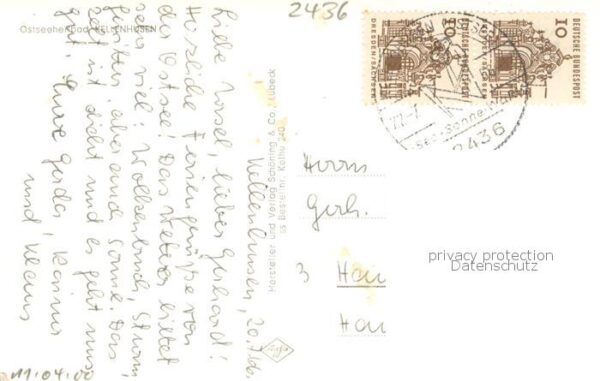 2436
Ostseeheilbad KELLENHUSEN
Kellenhusen, 20.7.66
Liebe Rosel, lieber Gerhard!
Herzliche Feriengrüße von
der Ostsee! Das Wetter bietet
sehr viel: Wolkenbruch, Sturm,
Gewitter, aber auch Sonne. Das
Zelt ist dicht und es geht uns
gut. Eure Gerda,
und Klaus
11.04.00
Hersteller und Verlag Schöning & Co., Lübeck
Bestell-Nr. Kelhu 240
Agfa
DRESDEN/SACHSEN
DEUTSCHE BUNDESPOST
10
DEUTSCHE BUNDESPOST
10
2436
Herrn
Gerh.
3 Han
Han
privacy protection
Datenschutz